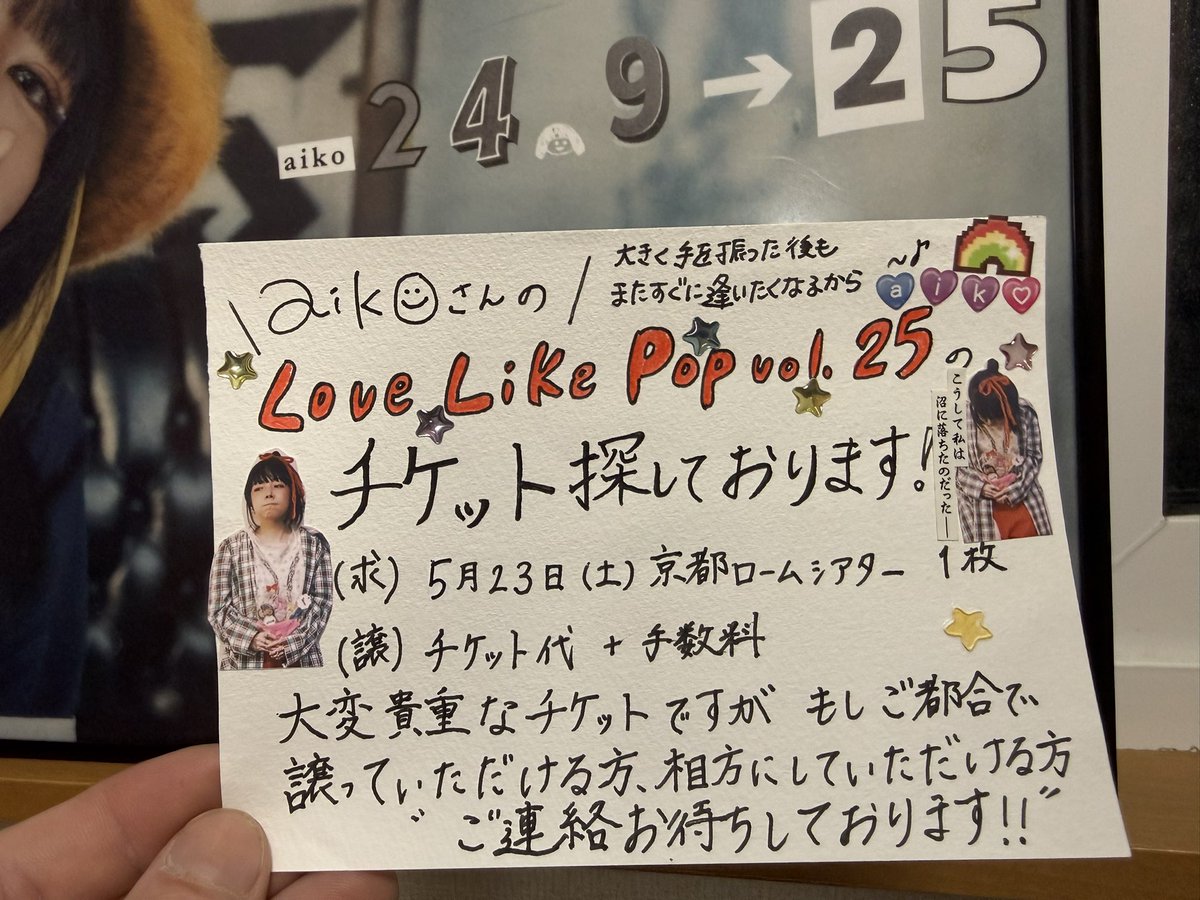 aiko 24.9→25
大きく手を振った後も
またすぐに逢いたくなるから
aiko
\ aikoさんの /
Love Like Pop vol. 25 の
チケット探しております!
こうして私は
沼に落ちたのだった──
(求) 5月23日(土) 京都ロームシアター 1枚
(譲) チケット代 + 手数料
大変貴重なチケットですが もしご都合で
譲っていただける方、相方にしていただける方
〝ご連絡お待ちしております!!〞